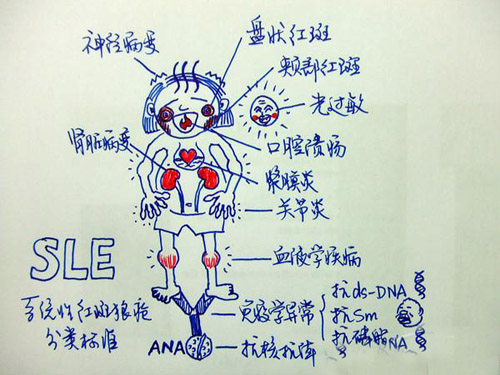 神经病变
盘状红斑
颊部红斑
光过敏
肾脏病变
口腔溃疡
浆膜炎
关节炎
血液学疾病
SLE
系统性红斑狼疮
分类标准
免疫学异常
抗ds-DNA
抗Sm
抗磷脂
ANA
抗核抗体